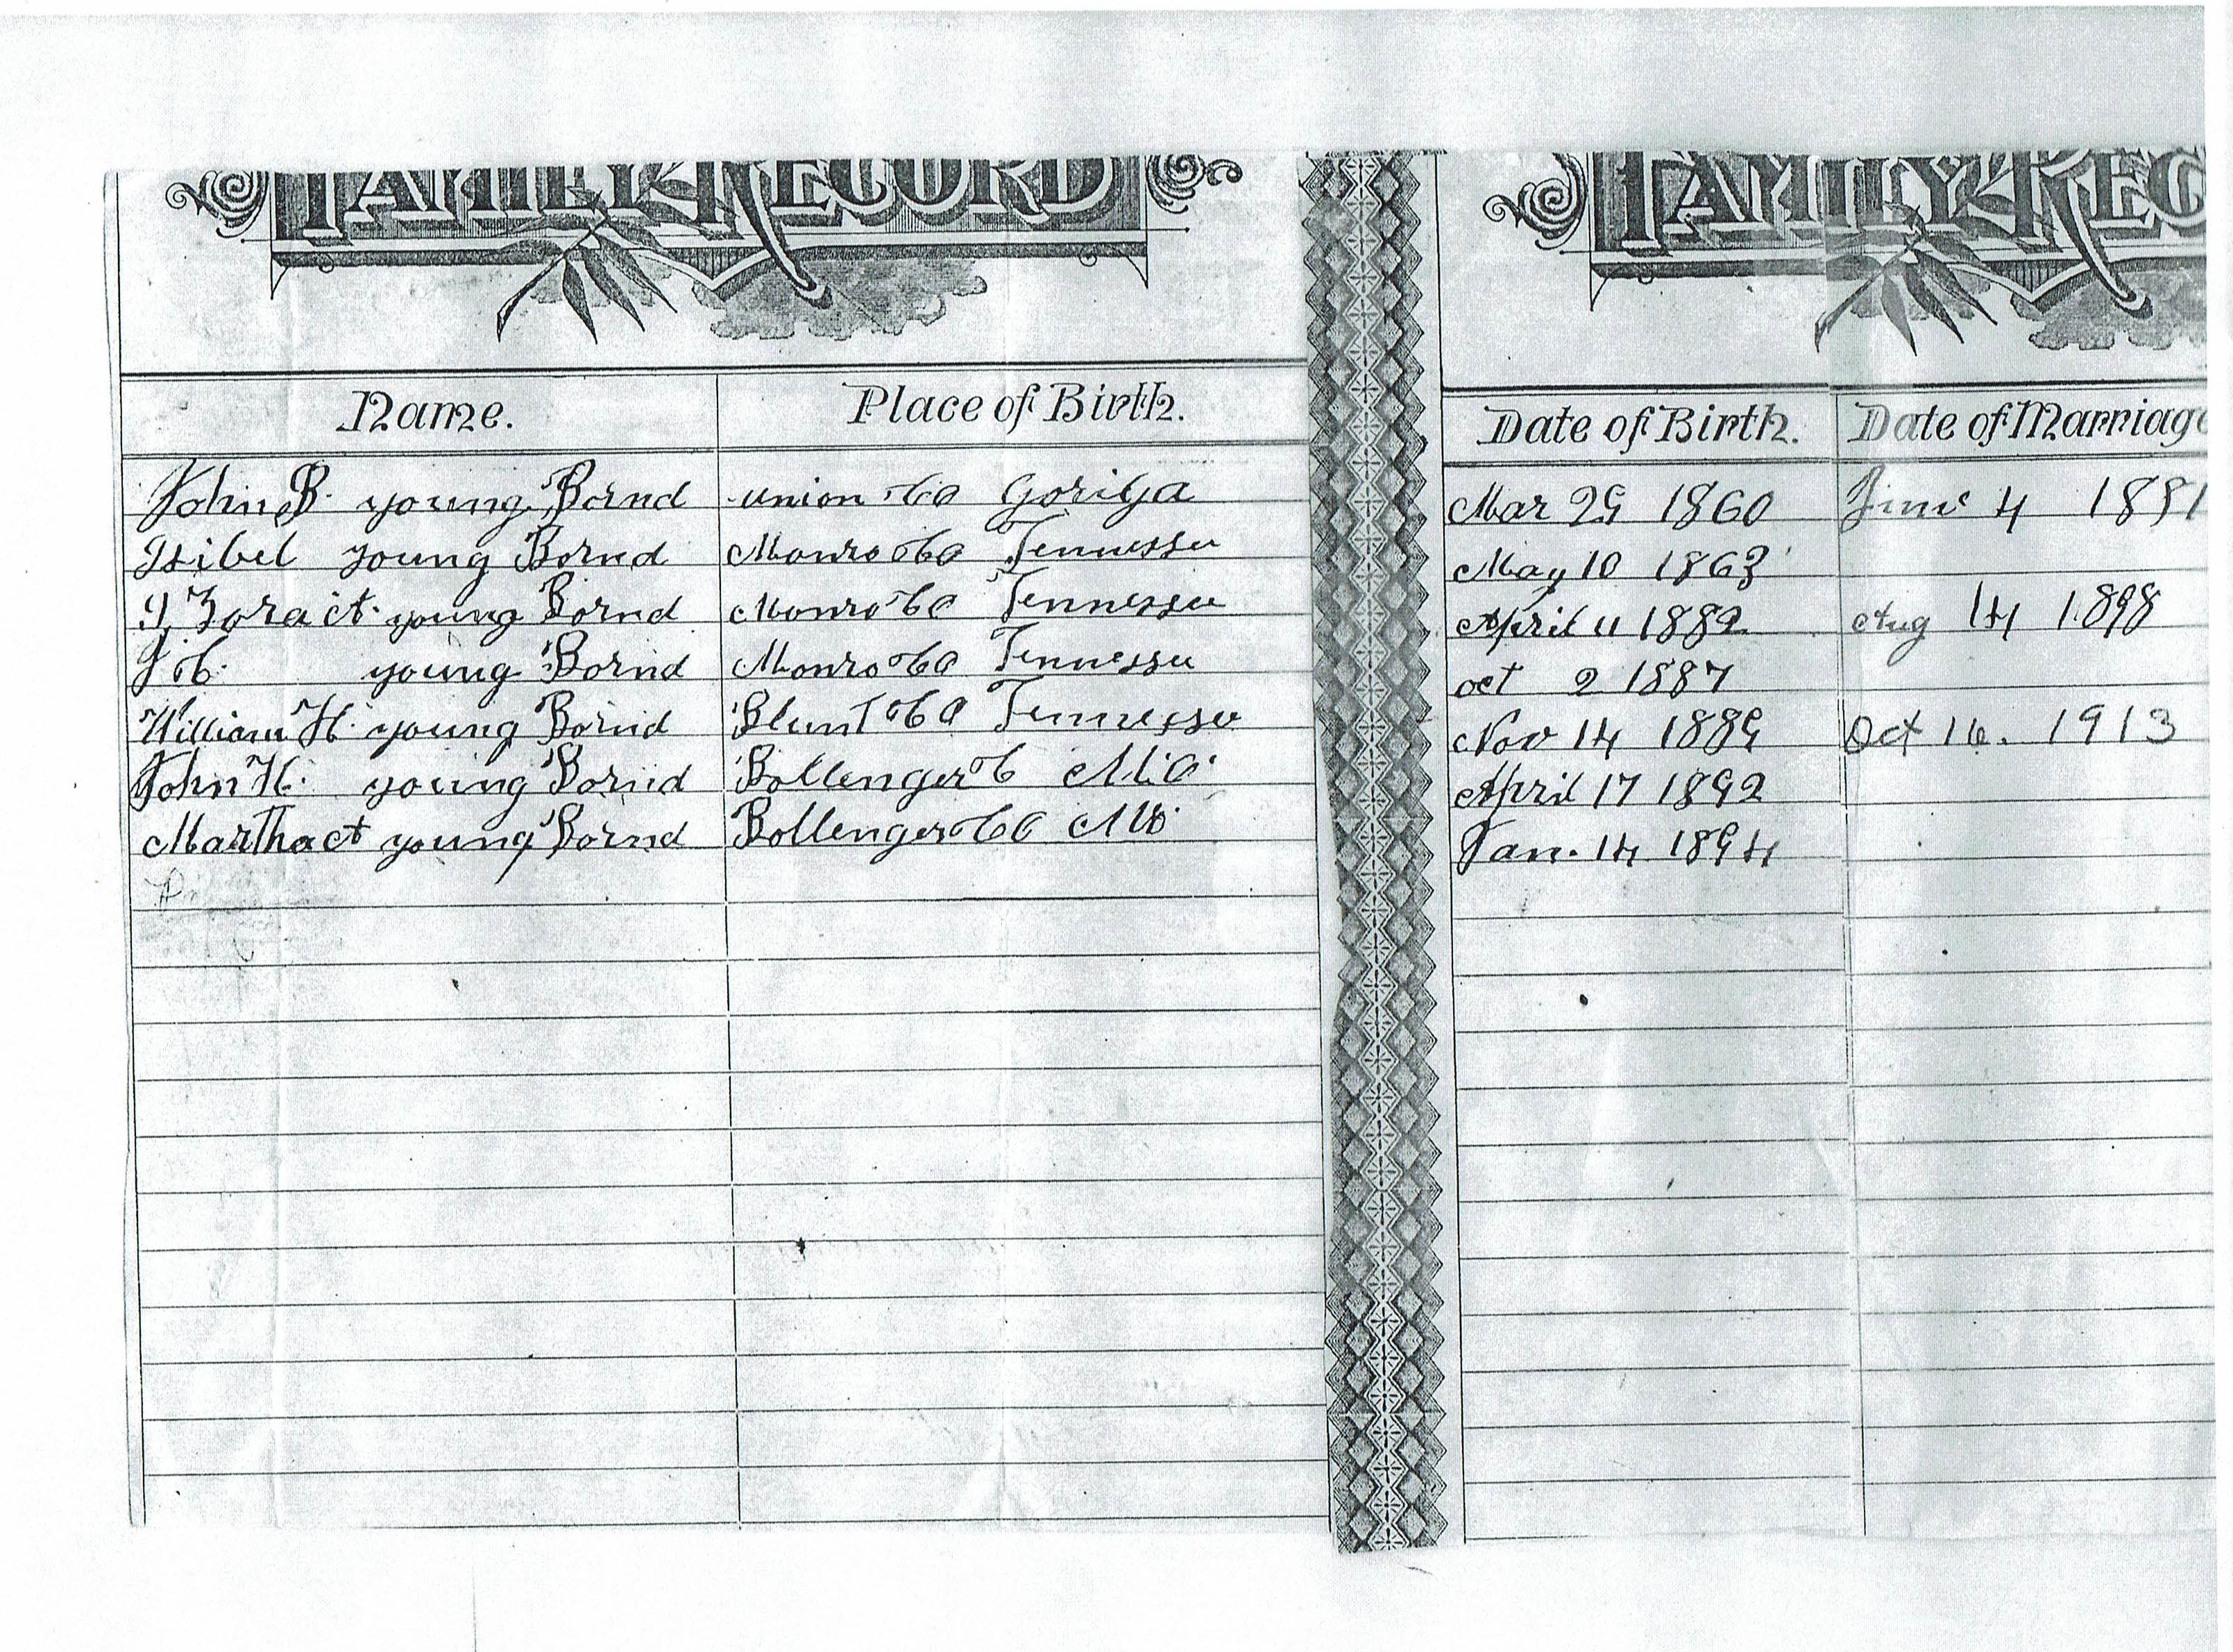 FAMILY RECORD FAMILY REC
Name. Place of Birth. Date of Birth. Date of Marriage
John B. young Bornd union Co Goriga Mar 29 1860 June 4 1881
Isibel young Bornd Monro Co Tennessee May 10 1863
Zora A. young Bornd Monro Co Tennessee April 11 1882 Aug 14 1898
J C. young Bornd Monro Co Tennessee oct 2 1887
William H. young Bornd Blunt Co Tennessee Nov 14 1889 Oct 16. 1913
John H. young Bornd Bollenger C M.O. April 17 1892
Martha A young Bornd Bollenger CO Mo. Jan. 14 1894